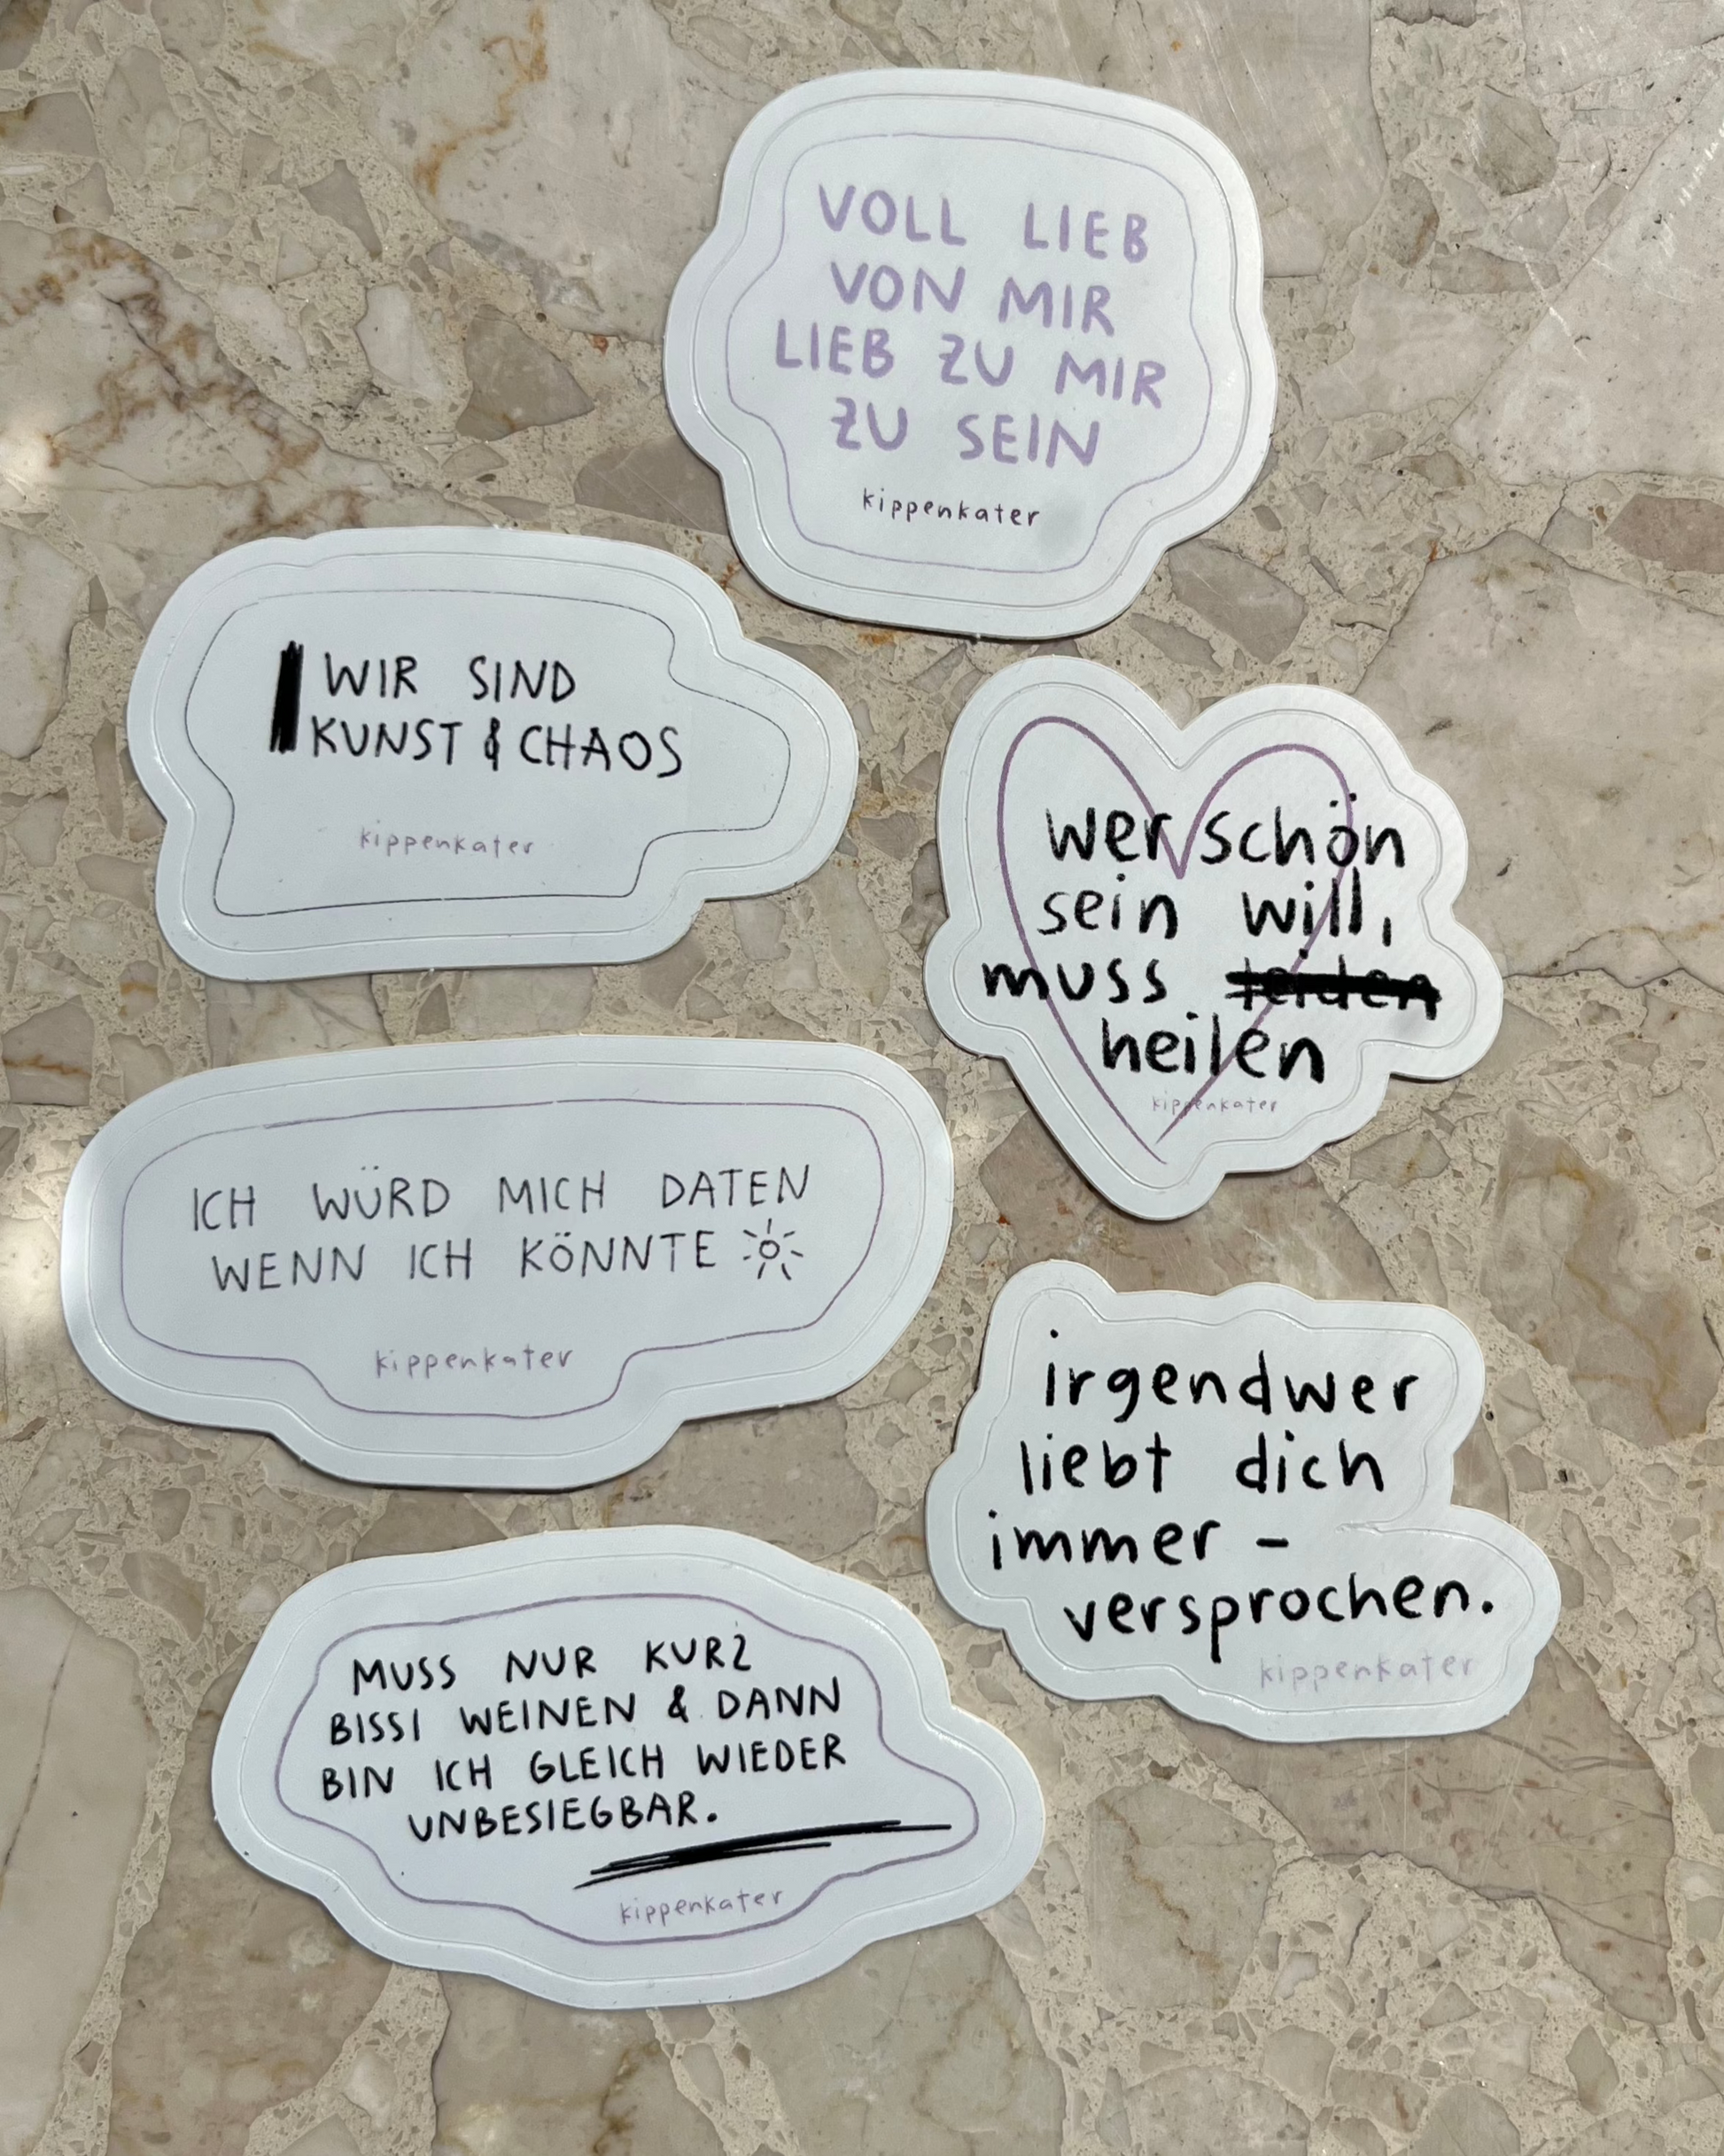 VOLL LIEB
VON MIR
LIEB ZU MIR
ZU SEIN
kippenkater
WIR SIND
KUNST & CHAOS
kippenkater
wer schön
sein will,
muss leiden
heilen
kippenkater
ICH WÜRD MICH DATEN
WENN ICH KÖNNTE
kippenkater
irgendwer
liebt dich
immer -
versprochen.
kippenkater
MUSS NUR KURZ
BISSI WEINEN & DANN
BIN ICH GLEICH WIEDER
UNBESIEGBAR.
kippenkater